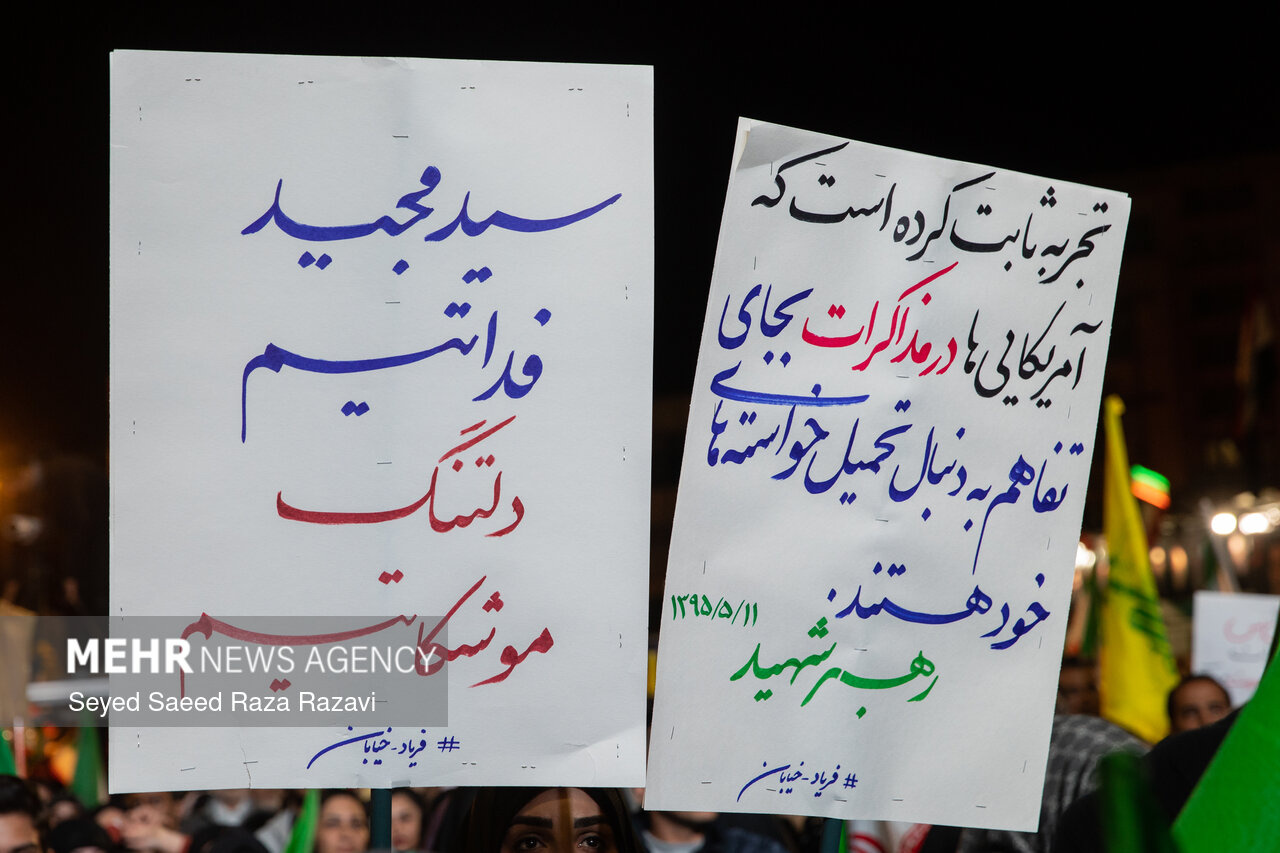 سید مجید
فدائتیم
دلتنگ
موشکاتیم
# فریاد-خیابان
تجربه ثابت کرده است که
آمریکایی‌ها در مذاکرات بجای
تفاهم به دنبال تحمیل خواسته‌های
خود هستند.
۱۳۹۵/۵/۱۱
رهبر شهید
# فریاد-خیابان
MEHR NEWS AGENCY
Seyed Saeed Raza Razavi